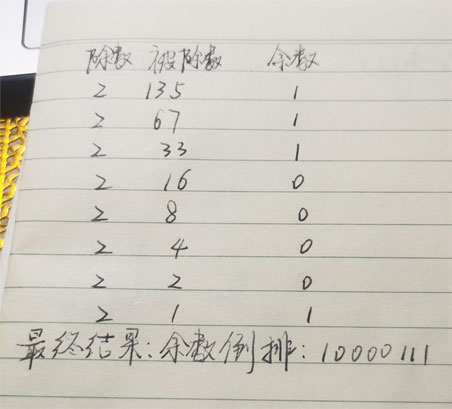 除数 被除数 余数
2 135 1
2 67 1
2 33 1
2 16 0
2 8 0
2 4 0
2 2 0
2 1 1
最终结果：余数倒排：10000111